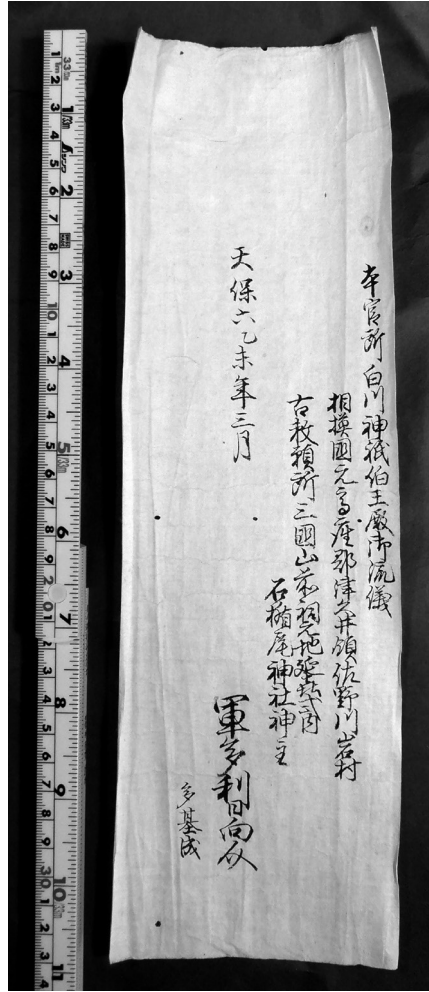 本官所白川神祇伯王殿御流儀
相模國元高座郡津久井領佐野川岩村
古敕願所三國山前祠元地
石楯尾神社神主
軍多利日向介
多基成
天保六乙未年三月